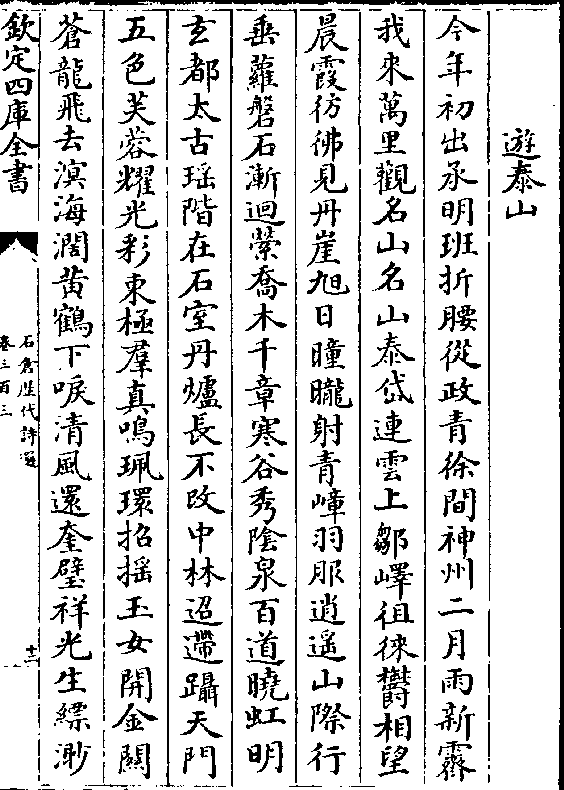 遊泰山
今年初出承明班折腰從政青徐間神州二月雨新霽
我來萬里觀名山名山泰岱連雲上鄒嶧徂徠鬱相望
晨霞彷彿見丹崖旭日曈曨射青嶂羽服逍遥山際行
垂蘿磐石漸迴縈喬木千章寒谷秀陰泉百道曉虹明
玄都太古瑶階在石室丹爐長不改中林迢遰躡天門
五色芙蓉耀光彩東極羣真鳴珮環招揺玉女開金闗
蒼龍飛去溟海濶黄鶴下唳清風還奎璧祥光生縹渺
欽定四庫全書
石倉歴代詩選
卷三百三
十二